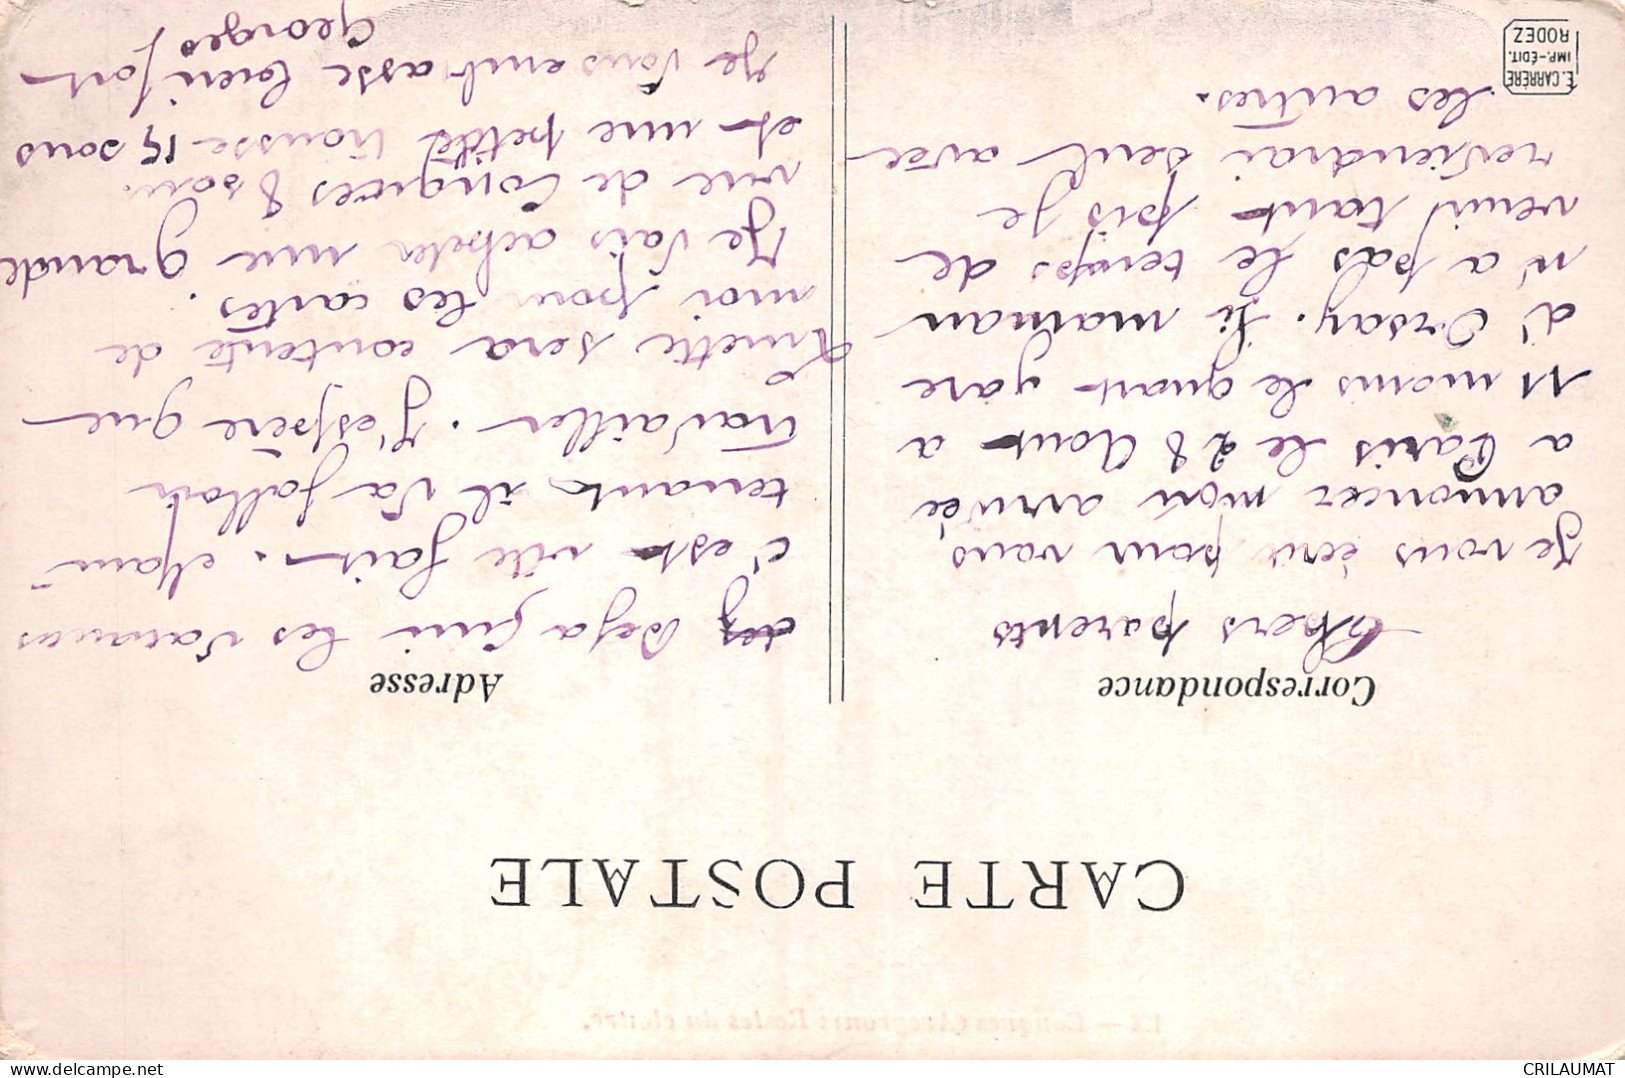 CARTE POSTALE
Correspondance
Chers parents
Je vous écrit pour vous,
annoncer mon arrivée
a Paris le 28 Aout a
11 moins le quart gare
d'Orsay. Si maman
n'a pas le temps de
venir tant pis je
reviendrai seul avec
les autres.
E. CARRÈRE
IMP.-ÉDIT.
RODEZ
Adresse
Deja fini les vacances
c'est vite fait. Maint
tenant il va falloir
travailler. J'espère que
Ginette sera contente de
moi pour les cartes.
Je vais acheter une grande
vue de Conques 8 sous
et une petite trousse 15 sous
Je vous embrasse bien fort
Georges
Conques (Aveyron) : Restes du cloître.
CRILAUMAT